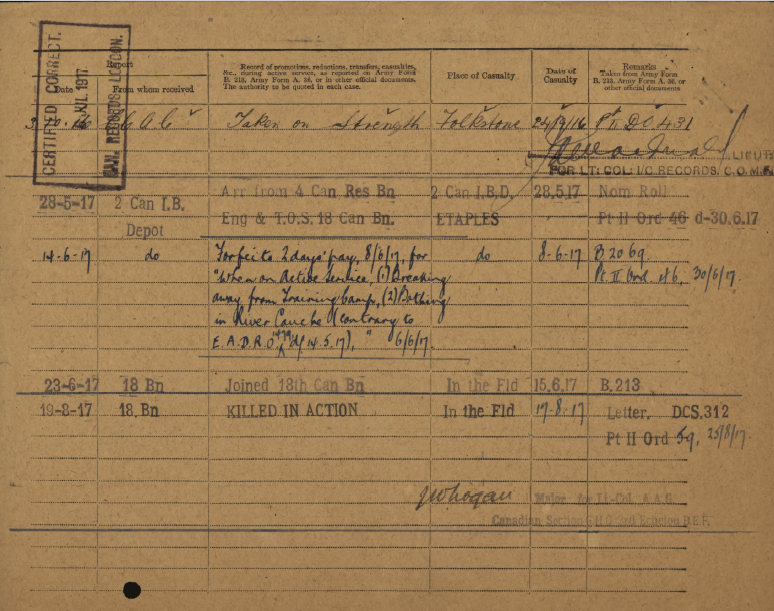 CERTIFIED CORRECT.
XII. 1917
CAN. RECORDS LONDON.
Report
Date
From whom received
Record of promotions, reductions, transfers, casualties,
&c., during active service, as reported on Army Form
B. 213, Army Form A. 36, or in other official documents.
The authority to be quoted in each case.
Place of Casualty
Date of
Casualty
Remarks
Taken from Army Form
B. 213, Army Form A. 36, or
other official documents
Taken on Strength Folkstone Pt II DO 431
LIEUT
FOR LT: COL: I/C RECORDS, C.O.M.F.
28-5-17 2 Can I.B. Depot
Arr from 4 Can Res Bn
Eng & T.O.S. 18 Can Bn.
2 Can I.B.D.
ETAPLES
28.5.17
Nom Roll
Pt II Ord 46 d-30.6.17
14-6-17 do
Forfeits 2 days' pay, 8/6/17, for
"When on Active Service, (1) Breaking
away from Training Camp, (2) Bathing
in River Canche (contrary to
E.A.D.R.O 1479 d/14.5.17), " 6/6/17.
do
8-6-17
B 2069.
Pt. II Ord. 46, 30/6/17.
23-6-17 18 Bn Joined 18th Can Bn In the Fld 15.6.17 B.213
19-8-17 18.Bn KILLED IN ACTION In the Fld 17-8-17 Letter, DCS.312
Pt II Ord 59, 25/8/17.
Major for Lt-Col. A.A.G.
Canadian Section G.H.Q. 3rd Echelon B.E.F.